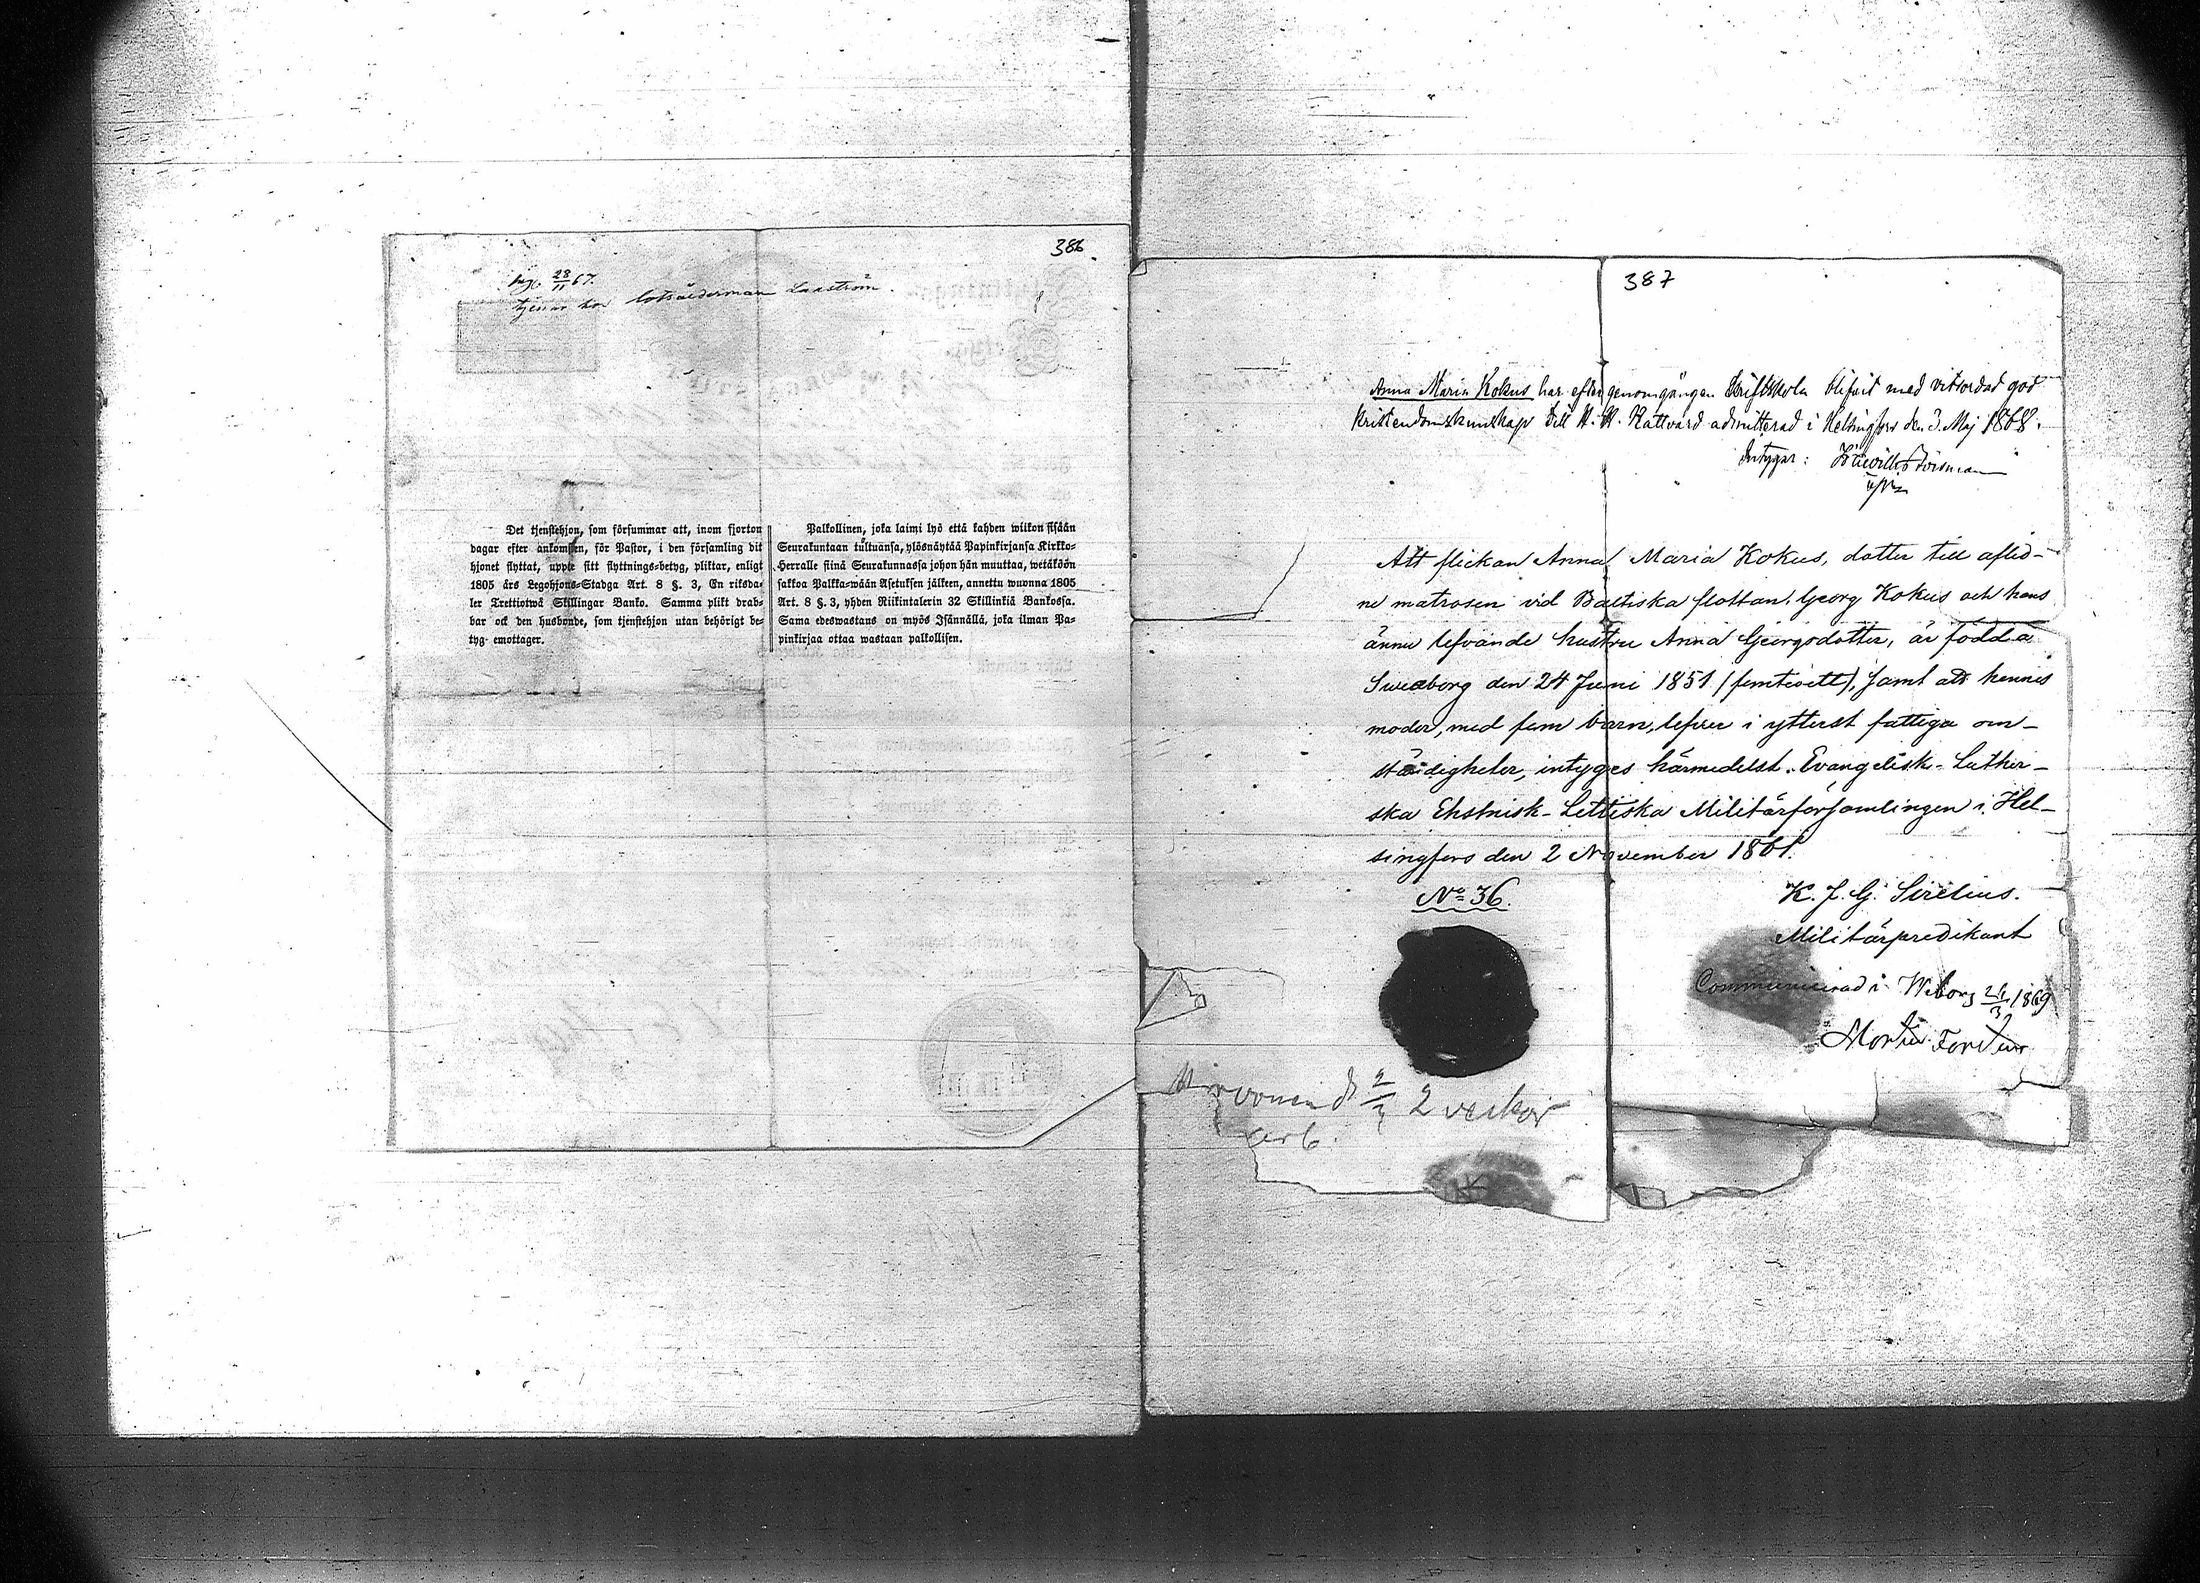 386.
28/11 67.
tjenar hos lotsålderman Laxström.
Det tjenstehjon, som försummar att, inom fjorton
dagar efter ankomsten, för Pastor, i den församling dit
hjonet flyttat, uppte sitt flyttnings-betyg, pliktar, enligt
1805 års Legohjons-Stadga Art. 8 §. 3, En riksda-
ler Trettiotwå Skillingar Banko. Samma plikt drab-
bar ock den husbonde, som tjenstehjon utan behörigt be-
tyg emottager.
Palkollinen, joka laimi lyö että kahden wiikon sisään
Seurakuntaan tultuansa, ylösnäytää Papinkirjansa Kirkko-
Herralle siinä Seurakunnassa johon hän muuttaa, wetäköön
sakkoa Palkka-wään Asetuksen jälkeen, annettu wuonna 1805
Art. 8 §. 3, yhden Riikintalerin 32 Skillinkiä Bankossa.
Sama edeswastaus on myös Isännällä, joka ilman Pa-
pinkirjaa ottaa wastaan palkollisen.
387
Anna Maria Kokus har efter genomgången Skriftskola blifvit med vitsordad god
kristendomskunskap till H. H. Nattvard admitterad i Helsingfors den 3. Maj 1868.
Intygar:
Att flickan Anna Maria Kokus, dotter till aflid-
ne matrosen vid Baltiska flottan, Georg Kokus och hans
ännu lefvande hustru Anna Georgsdotter, är född å
Sweaborg den 24 Juni 1851 (femtioett), samt att hennes
moder, med fem barn, lefver i ytterst fattiga om-
ständigheter, intyges härmedelst. Evangelisk-Luther-
ska Ehstnisk-Lettiska Militärförsamlingen i Hel-
singfors den 2 November 1861.
No 36.
K. J. G. Sirelius.
Militärpredikant
Communicerad i Wiborg 1869
2/3 2 veckor